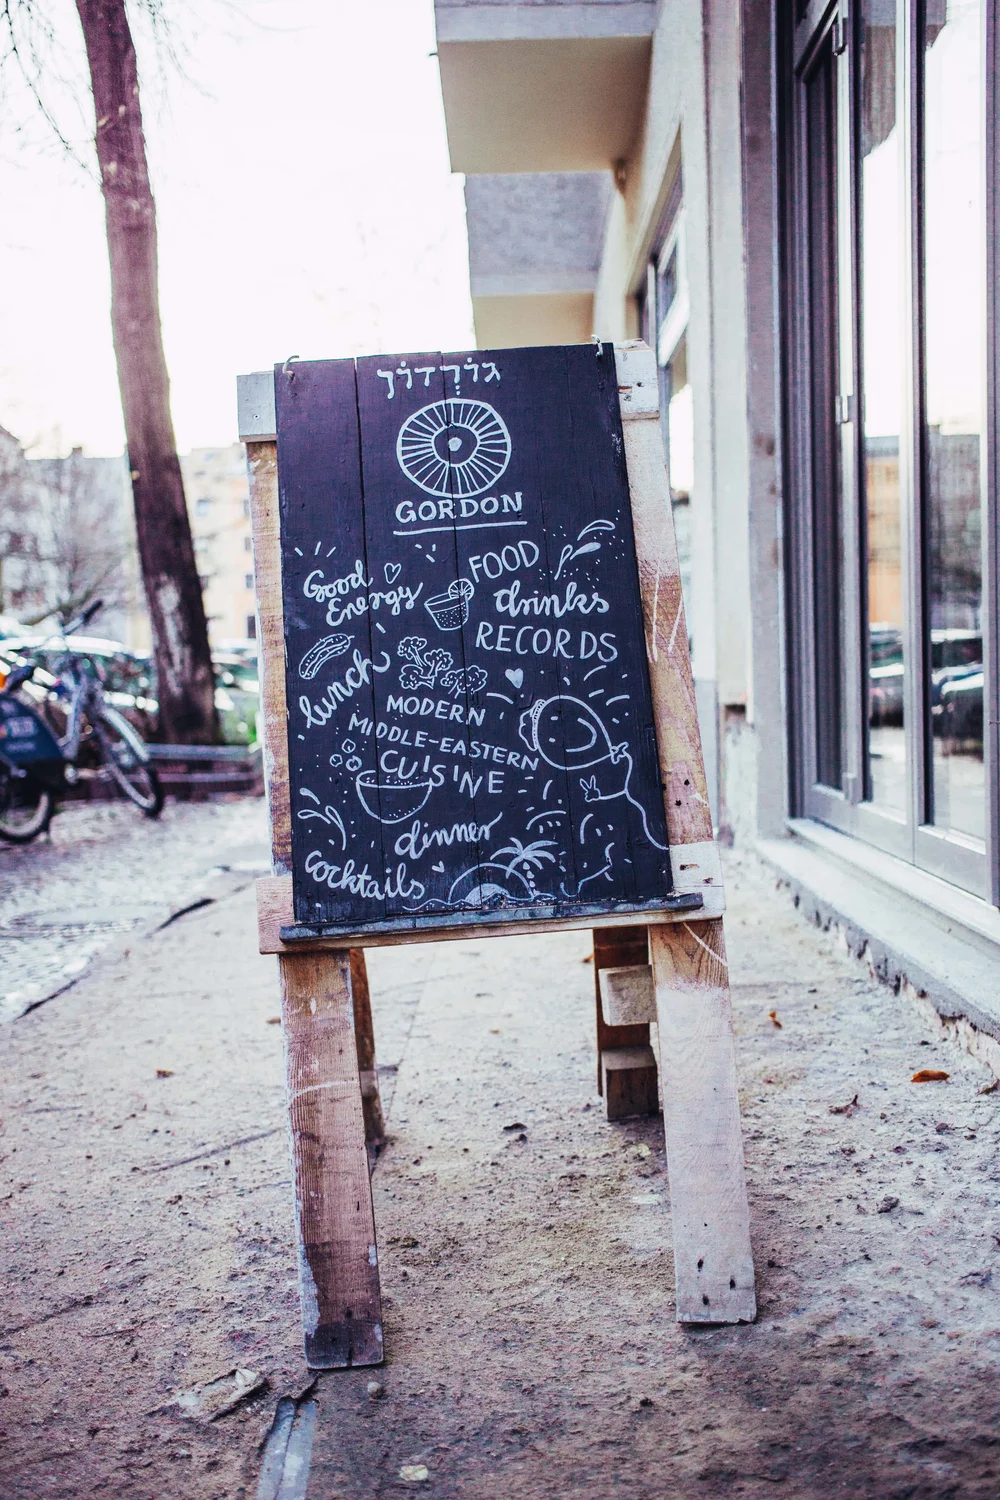 גוֹרְדוֹן
GORDON
Good
Energy
FOOD
drinks
RECORDS
lunch
MODERN
MIDDLE-EASTERN
CUISINE
dinner
cocktails